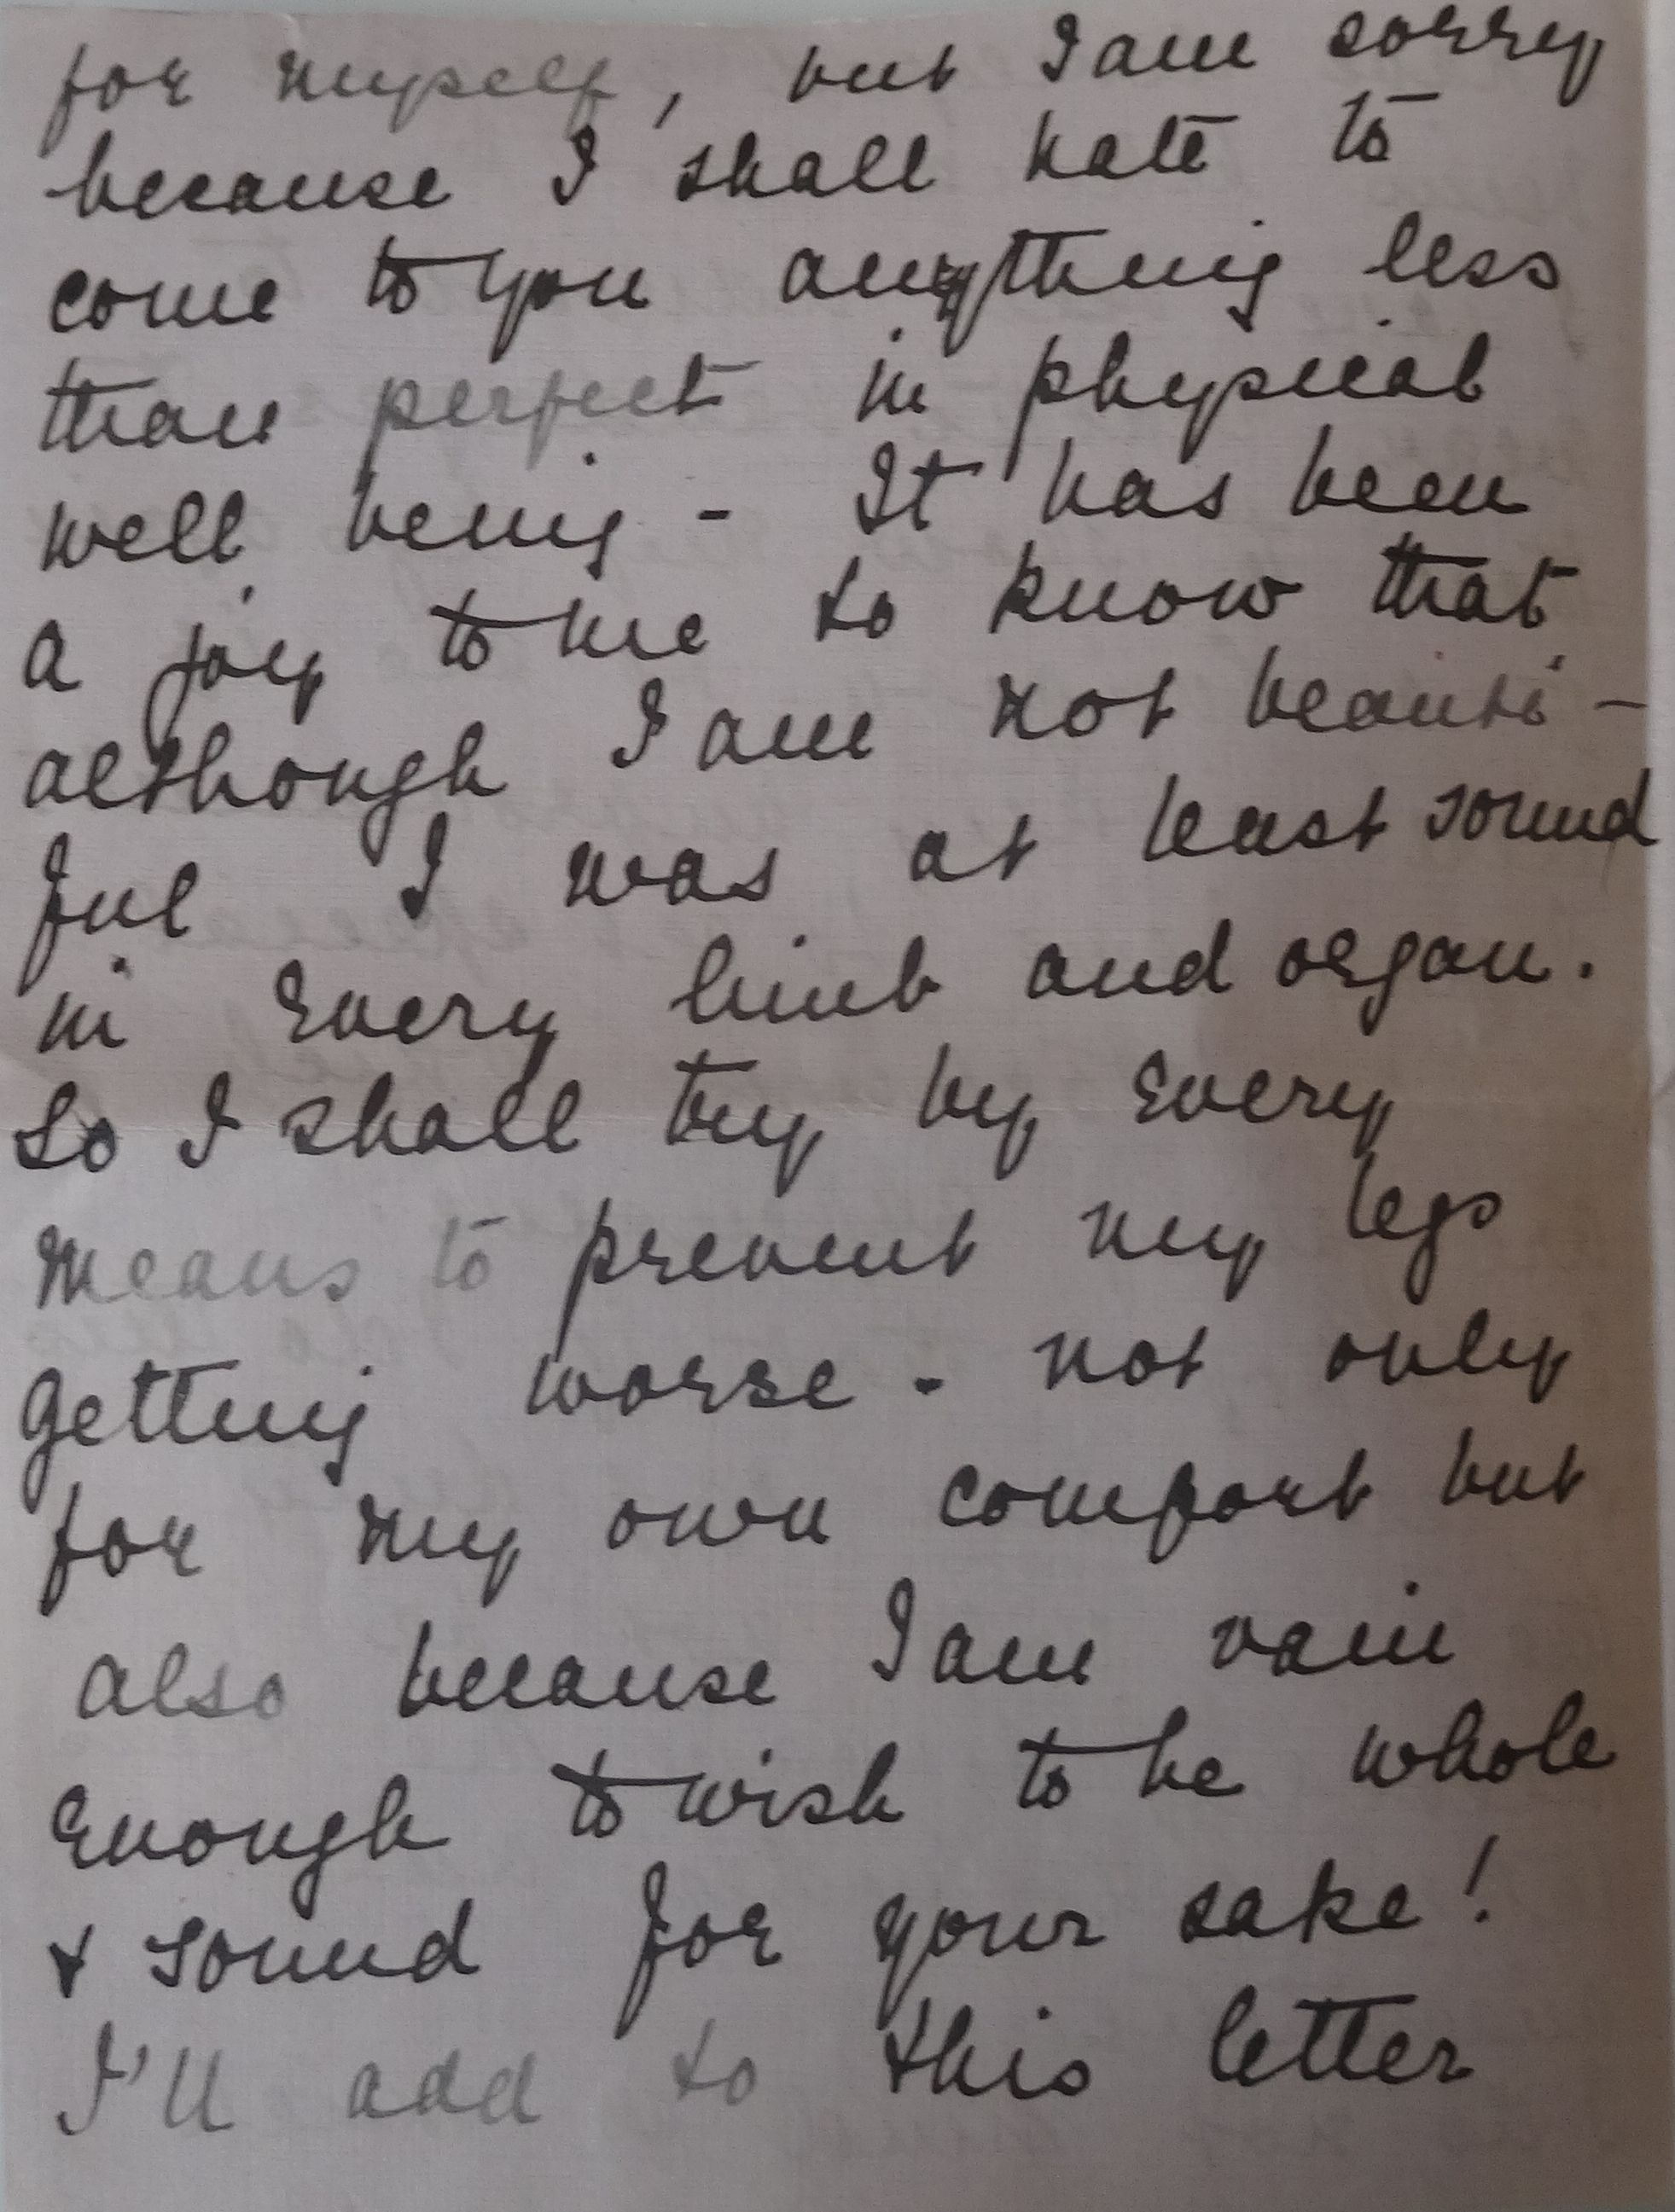 for myself, but I am sorry
because I shall hate to
come to you anything less
than perfect in physical
well being - It has been
a joy to me to know that
although I am not beauti-
ful I was at least sound
in every limb and organ.
So I shall try by every
means to prevent my legs
getting worse - not only
for my own comfort but
also because I am vain
enough to wish to be whole
& sound for your sake!
I'll add to this letter